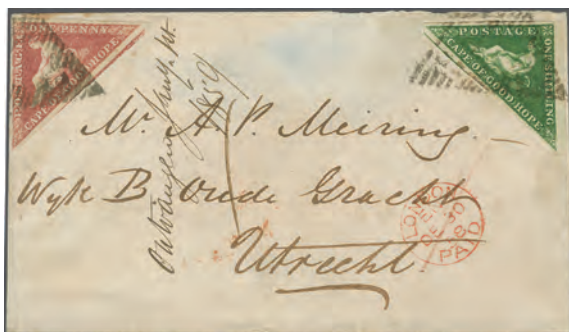 POSTAGE
ONE PENNY
CAPE OF GOOD HOPE
POSTAGE
ONE SHILLING
CAPE OF GOOD HOPE
Mr. A. P. Meiring.
Wyk B Oude Gracht
Utrecht
Ontvangen
1859
LONDON
DE 30
PAID